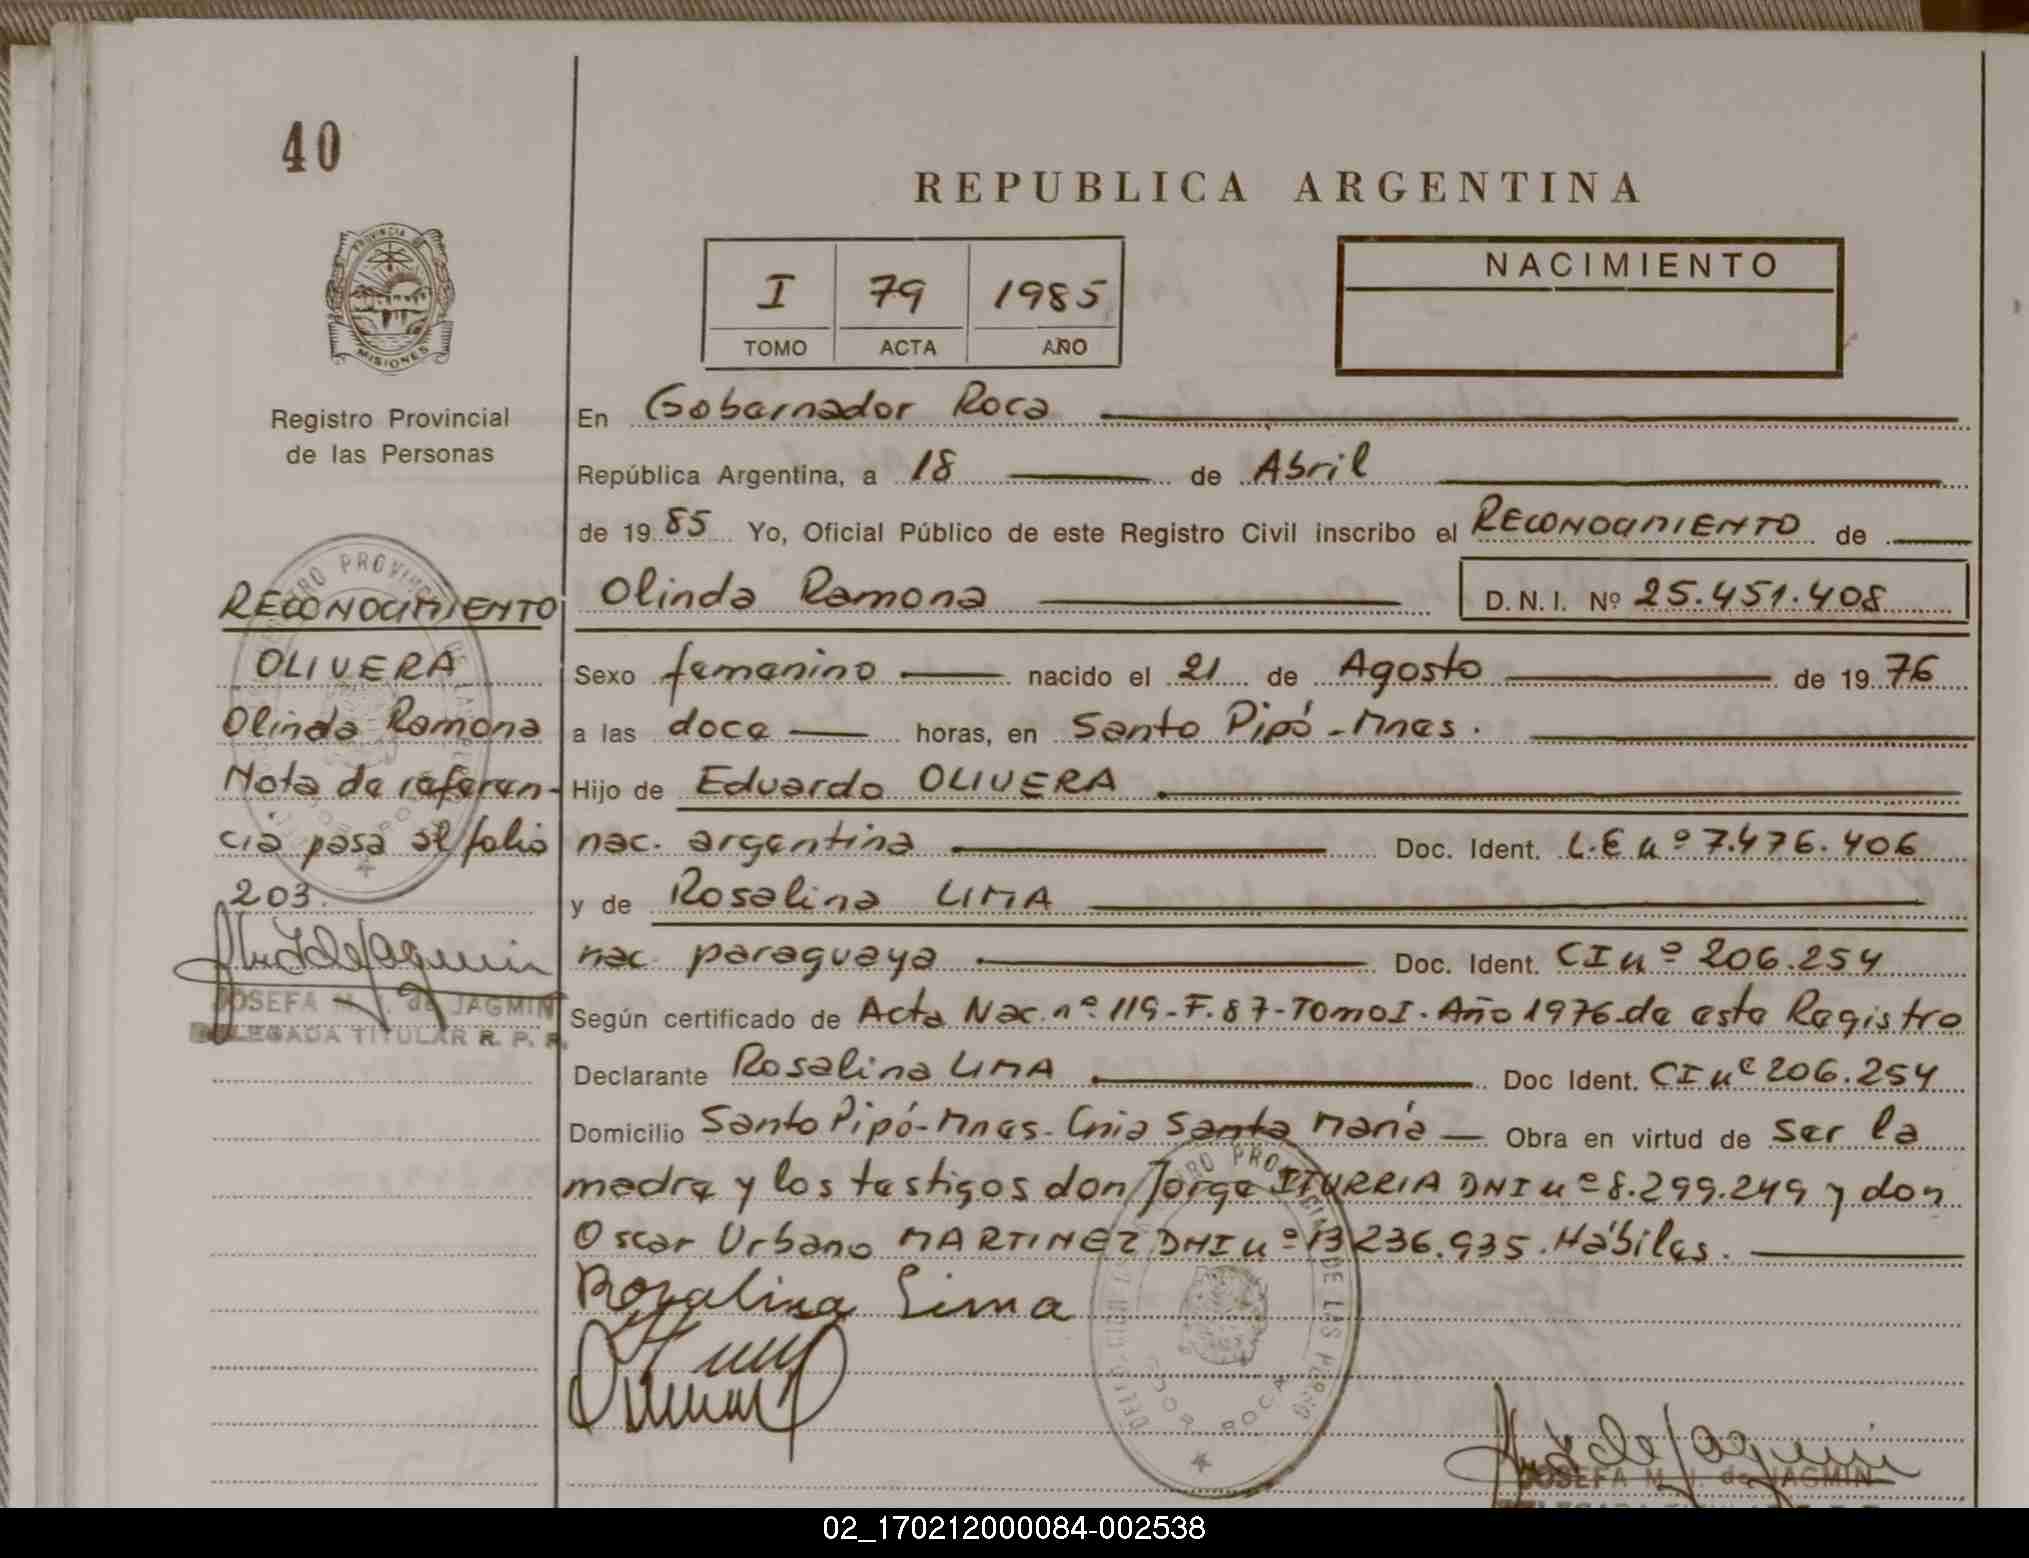 40
REPUBLICA ARGENTINA
PROVINCIA DE
MISIONES
I 79 1985
TOMO ACTA AÑO
NACIMIENTO
Registro Provincial
de las Personas
En Gobernador Roca
República Argentina, a 18 de Abril
de 19 85 Yo, Oficial Público de este Registro Civil inscribo el RECONOCIMIENTO de
Olinda Ramona D.N.I. Nº 25.451.408
Sexo femenino nacido el 21 de Agosto de 19 76
a las doce horas, en Santo Pipó - Mnes.
Hijo de Eduardo OLIVERA
nac. argentina Doc. Ident. L.E nº 7.476.406
y de Rosalina LIMA
nac. paraguaya Doc. Ident. CI nº 206.254
Según certificado de Acta Nac. nº 119-F.87-Tomo I. Año 1976 de este Registro
Declarante Rosalina LIMA Doc Ident. CI nº 206.254
Domicilio Santo Pipó-Mnes. Cnia Santa María Obra en virtud de ser la
madre y los testigos don Jorge ITURRIA DNI nº 8.299.249 y don
Oscar Urbano MARTINEZ DNI nº 13.236.935. Hábiles.
Rozalina Lima
RECONOCIMIENTO
OLIVERA
Olinda Ramona
Nota de referen-
cia pasa al folio
203.
JOSEFA M. de JAGMIN
DELEGADA TITULAR R. P. P.
JOSEFA M. de JAGMIN
DELEGADA TITULAR R. P. P.
02_170212000084-002538